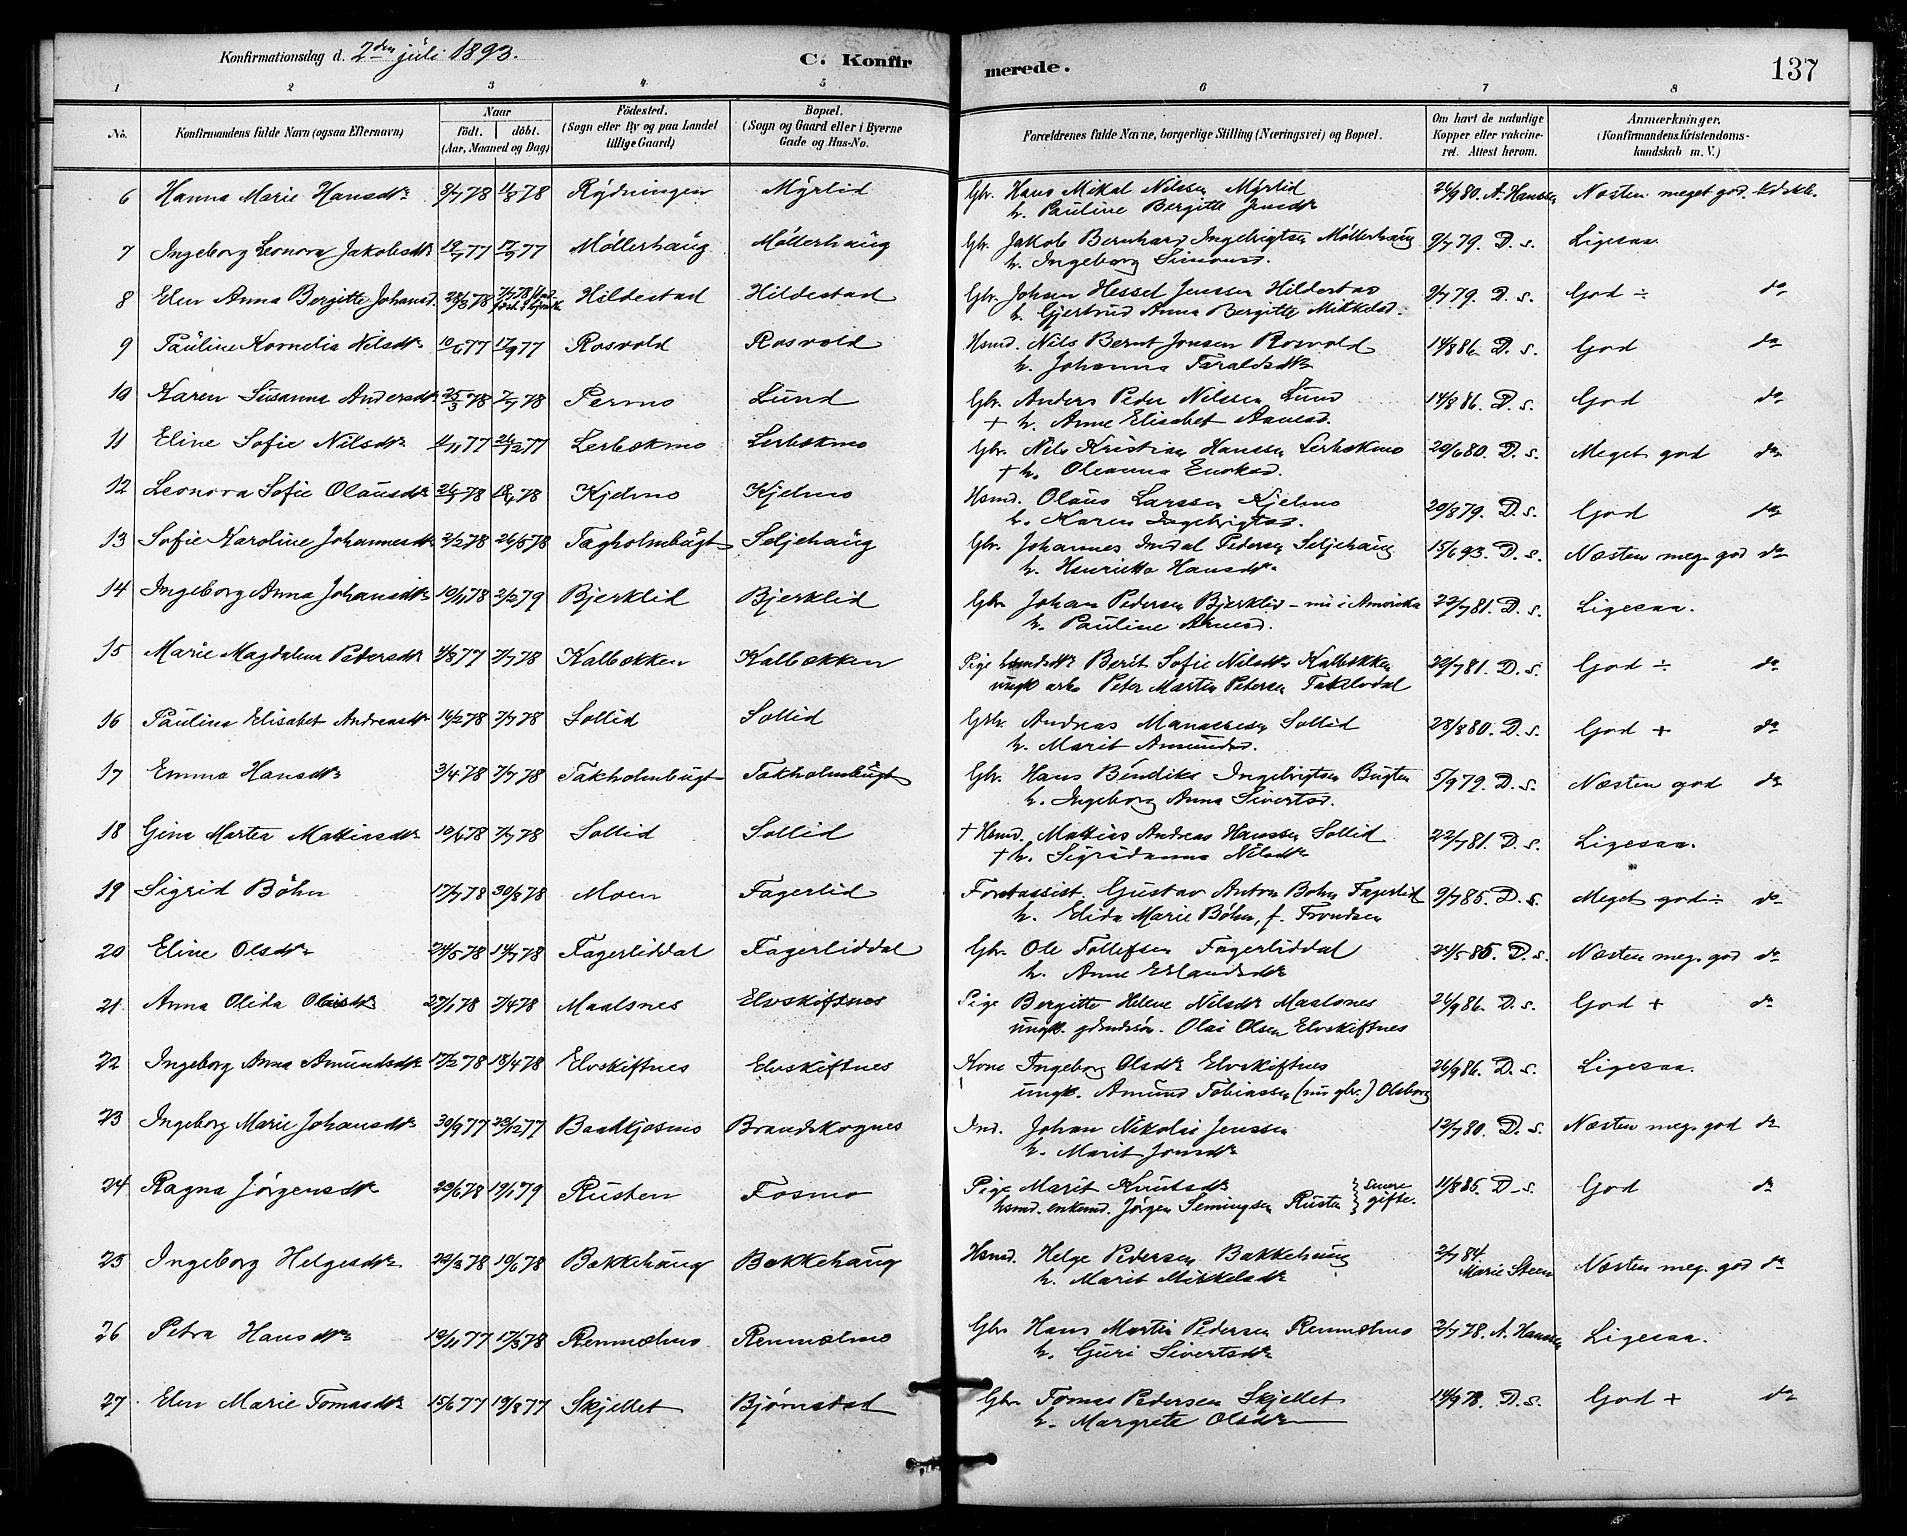 Konfirmationsdag d. 2den juli 1893. C. Konfirmerede. 137
1 2 3 4 5 6 7 8
No. Konfirmandens fulde Navn (ogsaa Efternavn) Naar født. døbt. (Aar, Maaned og Dag) Fødested. (Sogn eller By og paa Landet tillige Gaard) Bopæl. (Sogn og Gaard eller i Byerne Gade og Hus-No. Forældrenes fulde Navne, borgerlige Stilling (Næringsvei) og Bopæl. Om havt de naturlige Kopper eller vakcineret. Attest herom. Anmærkninger. (Konfirmandens Kristendomskundskab m. V.)
6 Hanna Marie Hansdtr 3/7 78 11/8 78 Rydningen Myrlid Gbr. Hans Mikal Nilssen Myrlid 26/9 80. A. Hanssen Næsten meget god
h. Pauline Bergitte Jensdtr
7 Ingeborg Leonora Jakobsdtr 19/7 77 17/9 77 Møllerhaug Møllerhaug Gbr. Jakob Bernhard Ingebrigtsen Møllerhaug 9/7 79. D. s. Ligesaa
h. Ingeborg Simonsd.
8 Elen Anna Bergitte Johansd. 28/3 78 7/7 78 Hildestad Hildestad Gbr. Johan Hessel Jenssen Hildestad 9/7 79. D. s. God ÷ do
h. Gjertrud Anna Bergitte Mikkelsd.
9 Pauline Kornelia Nilsdtr 10/6 77 17/9 77 Rosvold Rosvold Hsmd. Nils Bernt Jonsen Rosvold 14/8 86. D. s. God do
h. Johanna Taraldsdtr
10 Karen Susanna Andersdtr 25/3 78 7/7 78 Permo Lund Gbr. Anders Peder Nilssen Lund 14/8 86. D. s. God do
+ h. Anne Elisabet Aanesd.
11 Eline Sofie Nilsdtr 4/11 77 26/12 77 Lerbækmo Lerbækmo Gbr. Nils Kristian Hanssen Lerbækmo 20/6 80. D. s. Meget god do
+ h. Oleanna Enoksd.
12 Leonora Sofie Olausdtr 78 78 Kjelmo Kjelmo Hsmd. Olaus Larssen Kjelmo 20/8 79. D. s. God do
h. Karen Ingebrigtsd.
13 Sofie Karoline Johannesdtr 2/2 78 26/5 78 Tagholmbugt Seljehaug Gbr. Johannes Indal Pedersen Seljehaug 15/6 93. D. s. Næsten meg. god do
h. Henrikke Hansdtr
14 Ingeborg Anna Johansdtr 10/11 78 2/2 79 Bjerklid Bjerklid Gbr. Johan Pedersen Bjerklid – nu i Amerika 22/7 81. D. s. Ligesaa.
h. Pauline Arnesd.
15 Marie Magdalena Pedersdtr 4/8 77 7/7 78 Kalbækken Kalbækken Pige Berit Sofie Nilsdtr Kalbækken 29/7 81. D. s. God ÷ do
ungk. arb. Peter Martin Petersen Takelvdal
16 Paulina Elisabet Andreasdtr 16/2 78 7/7 78 Sollid Sollid Gbr. Andreas Manassesen Sollid 28/8 80. D. s. God + do
h. Marit Amundsd.
17 Emma Hansdtr 3/4 78 7/7 78 Takholmbugt Takholmbugt Gbr. Hans Bendiks Ingebrigtsen Bugten 5/9 79. D. s. Næsten god do
h. Ingeborg Anna Sivertsd.
18 Gina Martea Mathiasdtr 10/6 78 7/7 78 Sollid Sollid + Hsmd. Mathias Andreas Hanssen Sollid 22/7 81. D. s. Ligesaa.
+ h. Sigridanna Nilsdtr
19 Sigrid Bøhn 17/7 78 30/8 78 Moen Fagerlid Forstassist. Gustav Anton Bohn Fagerlid 9/7 85. D. s. Meget god ÷ do
h. Elida Marie Bøhn, f. Trondsen
20 Eline Olsdtr 24/5 78 14/7 78 Fagerliddal Fagerliddal Gbr. Ole Tollefsen Fagerliddal 21/5 85. D. s. Næsten meg. god do
h. Anne Erlandsdtr
21 Anna Olida Olaisdtr 27/1 78 7/4 78 Maalsnes Elvskiftnes Pige Bergitte Helene Nilsdtr Maalsnes 26/9 86. D. s. God + do
ungk. Olai Olsen Elvskiftnes
22 Ingeborg Anna Amundsdtr 17/2 78 18/4 78 Elvskiftnes Elvskiftnes Kone Ingeborg Olsdtr Elvskiftnes 26/9 86. D. s. Ligesaa.
ungk. Amund Tobiassen (nu gbr.) Olsborg
23 Ingeborg Marie Johansdtr 30/9 77 29/12 77 Baadkjosmo Brandskognes Ind. Johan Nikolai Jenssen 12/7 80. D. s. Næsten meg. god do
h. Marit Jonsdtr
24 Ragna Jørgensdtr 29/6 78 19/1 79 Rusten Fosmo Pige Marit Knutsdtr } senere 11/8 85. D. s. God do
hsmd. enkemd. Jørgen Semingsen Rusten } gifte.
25 Ingeborg Helgesdtr 29/3 78 10/6 78 Bakkehaug Bakkehaug Hsmd. Helge Pedersen Bakkehaug 2/7 84. Marie Steen Næsten meg. god do
h. Marit Mikkelsdtr
26 Petra Hansdtr 19/11 77 17/3 78 Renmælmo Renmælmo Gbr. Hans Martin Pedersen Renmælmo 2/7 78. A. Hanssen Ligesaa.
h. Guri Sivertsdtr
27 Elen Marie Tomasdtr 15/6 77 19/8 77 Skjellet Bjørnstad Gbr. Tomas Pedersen Skjellet 14/9 78. D. s. God + do
h. Margrete Olsdtr